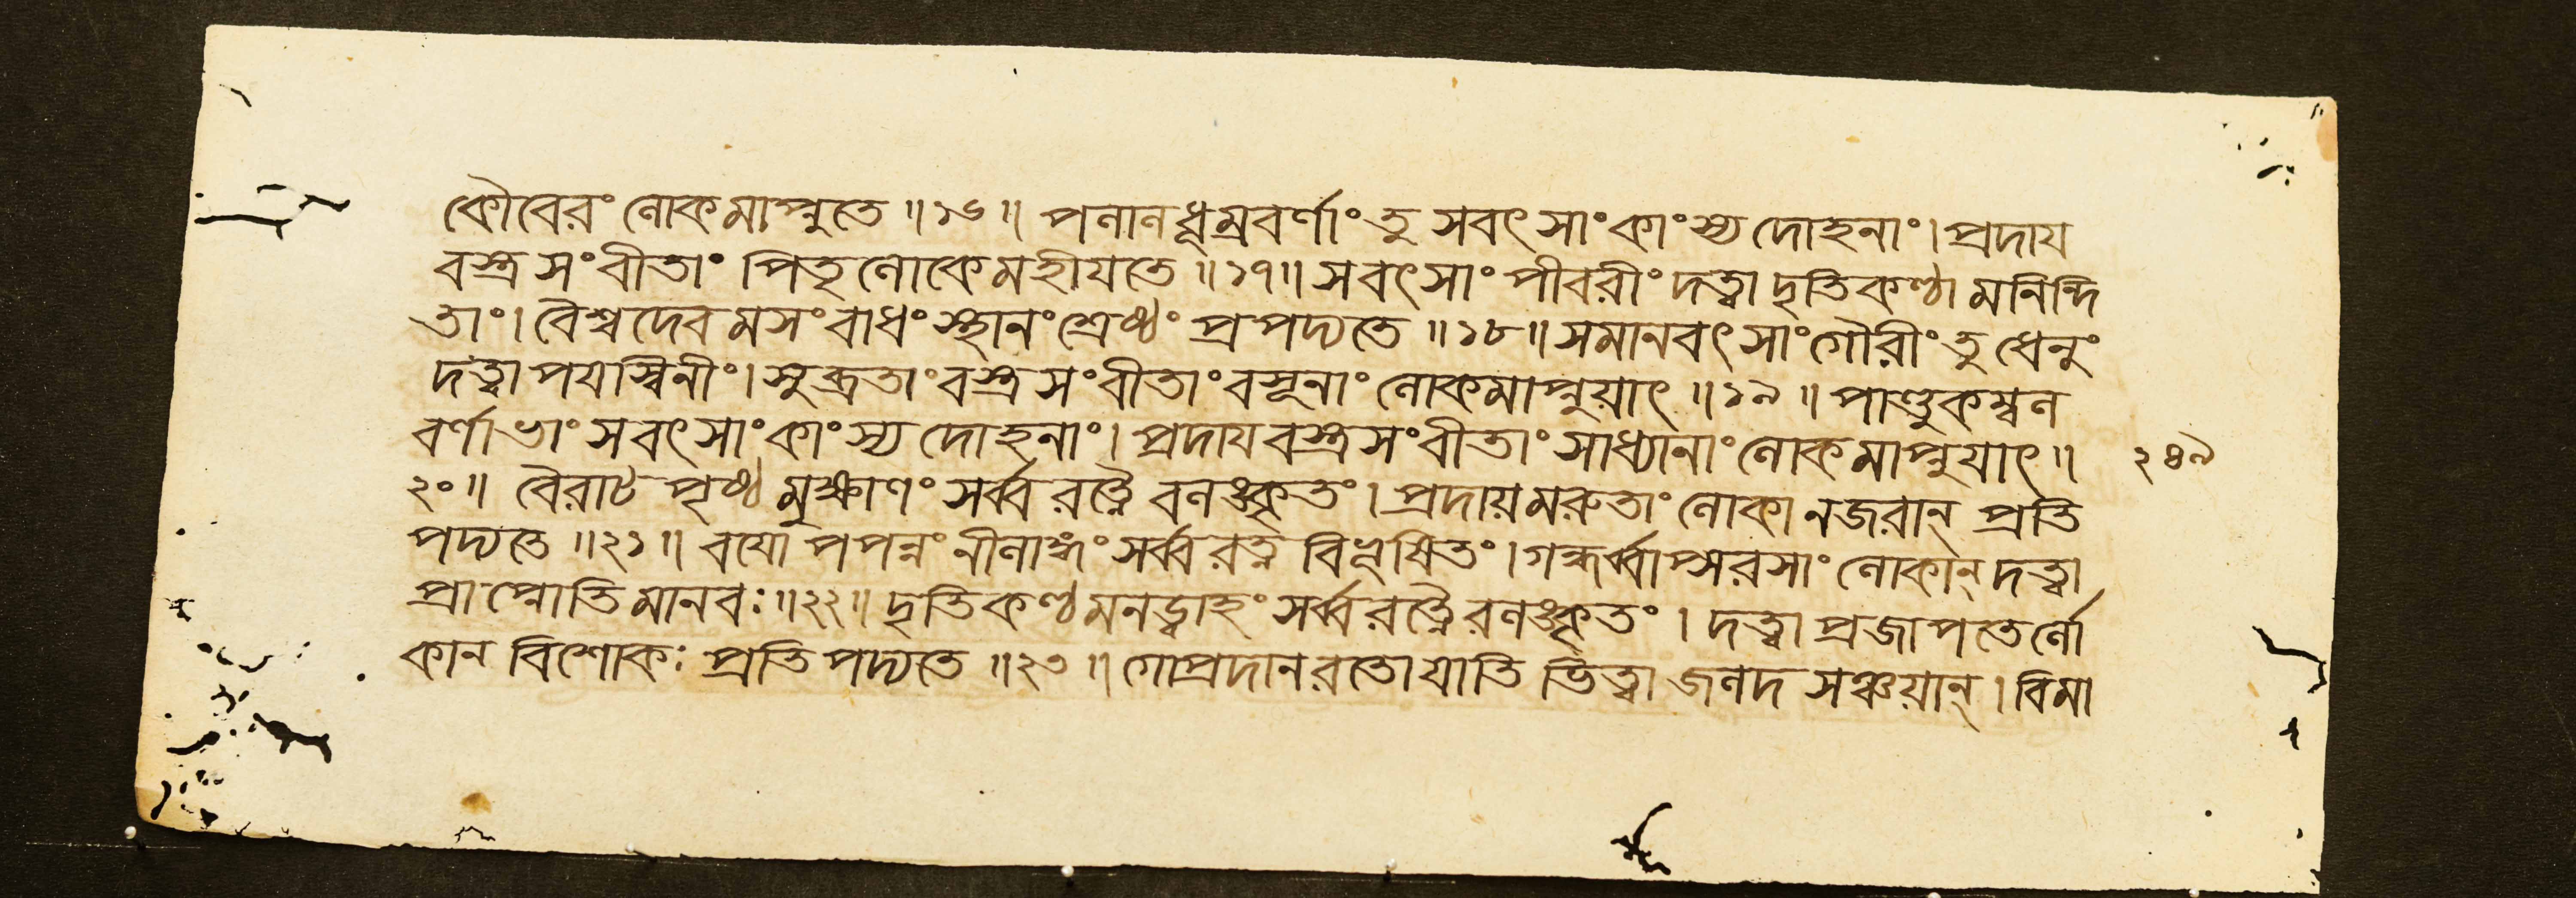 কৌবেরং লোকমাপ্নুতে ॥১৬॥ পলালধূম্রবর্ণাং তু সবৎসাং কাংস্যদোহনাং। প্রদায
বস্ত্রসংবীতাং পিতৃলোকে মহীযতে ॥১৭॥ সবৎসাং পীবরীং দত্বা দৃতিকণ্ঠামনিন্দি
তাং। বৈশ্বদেবমসংবাধং স্থানং শ্রেষ্ঠং প্রপদ্যতে ॥১৮॥ সমানবৎসাং গৌরীং তু ধেনুং
দত্বা পযস্বিনীং। সুব্রতাং বস্ত্রসংবীতাং বসূনাং লোকমাপ্নুয়াৎ ॥১৯॥ পাণ্ডুকম্বল
বর্ণাভাং সবৎসাং কাংস্যদোহনাং। প্রদায বস্ত্রসংবীতাং সাধ্যানাং লোকমাপ্নুযাৎ॥
২০॥ বৈরাটপৃষ্ঠমুক্ষাণং সর্ব্বরত্নৈবলঙ্কৃতং। প্রদায় মরুতাং লোকানজরান্ প্রতি
পদ্যতে ॥২১॥ বযোপপন্নং লীলাহ্গং সর্ব্বরত্নবিভূষিতং। গন্ধর্ব্বাপ্সরসাং লোকান্ দত্বা
প্রাপ্নোতি মানবঃ॥২২॥ দৃতিকণ্ঠমনড্বাহং সর্ব্বরত্নৈরলঙ্কৃতং। দত্বা প্রজাপতের্লো
কান বিশোকঃ প্রতিপদ্যতে ॥২৩॥ গোপ্রদানরতো যাতি ভিত্বা জলদসঞ্চয়ান্। বিমা
২৪৯